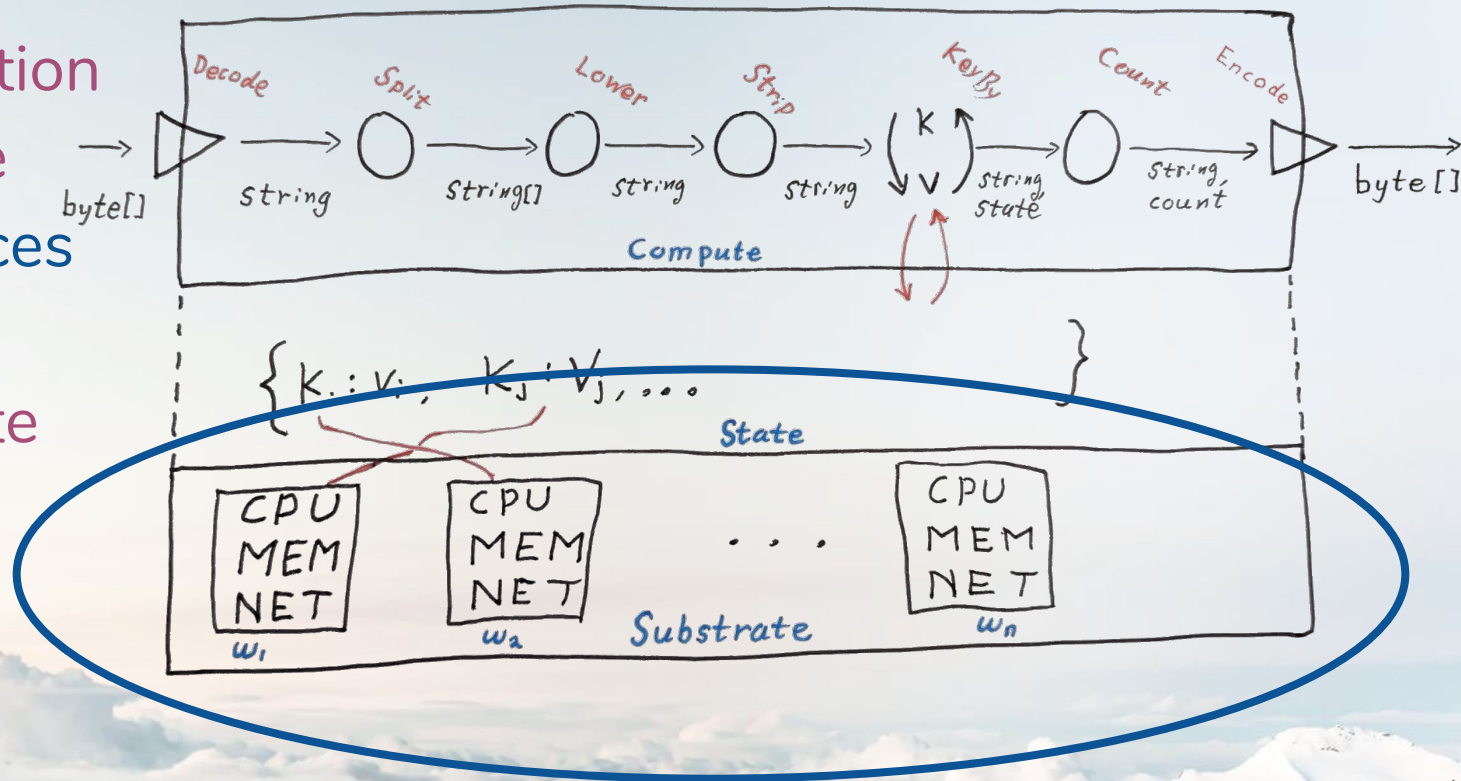 tion
e
ces
te
Decode
Split
Lower
Strip
KeyBy
Count
Encode
K
V
byte[]
string
string[]
string
string
string,
state
string,
count
byte[]
Compute
{ Ki : Vi, Kj : Vj, ... }
State
CPU
MEM
NET
w1
CPU
MEM
NET
w2
. . .
CPU
MEM
NET
wn
Substrate